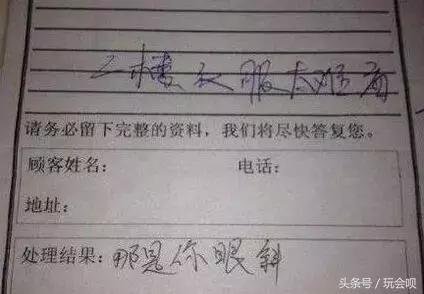 二楼衣服太难看
请务必留下完整的资料，我们将尽快答复您。
顾客姓名： 电话：
地址：
处理结果：那是你眼斜
头条号/玩会呗